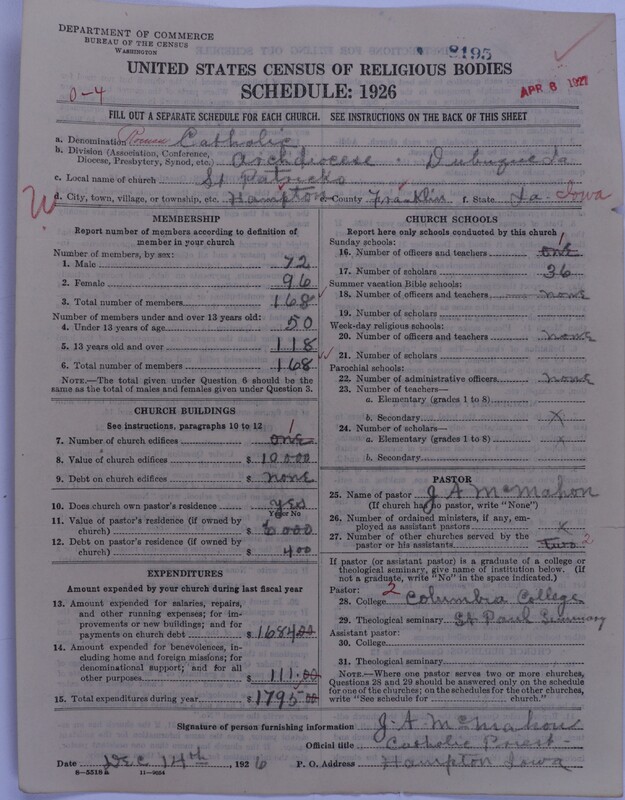 DEPARTMENT OF COMMERCE
BUREAU OF THE CENSUS
WASHINGTON
8195
UNITED STATES CENSUS OF RELIGIOUS BODIES
SCHEDULE: 1926
0-4
APR 8 1927
FILL OUT A SEPARATE SCHEDULE FOR EACH CHURCH. SEE INSTRUCTIONS ON THE BACK OF THIS SHEET
a. Denomination Roman Catholic
b. Division (Association, Conference, Diocese, Presbytery, Synod, etc.) Archdiocese - Dubuque Ia
c. Local name of church St Patricks
d. City, town, village, or township, etc. Hampton e. County Franklin f. State Ia. Iowa
MEMBERSHIP
Report number of members according to definition of
member in your church
Number of members, by sex:
1. Male 72
2. Female 96
3. Total number of members 168
Number of members under and over 13 years old:
4. Under 13 years of age 50
5. 13 years old and over 118
6. Total number of members 168
NOTE.—The total given under Question 6 should be
the same as the total of males and females given under Question 3.
CHURCH BUILDINGS
See instructions, paragraphs 10 to 12
7. Number of church edifices one 1
8. Value of church edifices $ 10000
9. Debt on church edifices $ none
10. Does church own pastor's residence yes
Yes or No
11. Value of pastor's residence (if owned by
church) $ 6000
12. Debt on pastor's residence (if owned by
church) $ 400
EXPENDITURES
Amount expended by your church during last fiscal year
13. Amount expended for salaries, repairs,
and other running expenses; for im-
provements or new buildings; and for
payments on church debt $ 1684.00
14. Amount expended for benevolences, in-
cluding home and foreign missions; for
denominational support; and for all
other purposes $ 111.00
15. Total expenditures during year $ 1795.00
CHURCH SCHOOLS
Report here only schools conducted by this church
Sunday schools:
16. Number of officers and teachers one 1
17. Number of scholars 36
Summer vacation Bible schools:
18. Number of officers and teachers none
19. Number of scholars
Week-day religious schools:
20. Number of officers and teachers none
21. Number of scholars
Parochial schools:
22. Number of administrative officers none
23. Number of teachers—
a. Elementary (grades 1 to 8)
b. Secondary x
24. Number of scholars—
a. Elementary (grades 1 to 8) x
b. Secondary
PASTOR
25. Name of pastor J A McMahon
(If church has no pastor, write "None")
26. Number of ordained ministers, if any, em-
ployed as assistant pastors x
27. Number of other churches served by the
pastor or his assistants two 2
If pastor (or assistant pastor) is a graduate of a college or
theological seminary, give name of institution below. (If
not a graduate, write "No" in the space indicated.)
Pastor: 2
28. College Columbia College
29. Theological seminary St Paul Seminary
Assistant pastor:
30. College
31. Theological seminary
NOTE.—Where one pastor serves two or more churches,
Questions 28 and 29 should be answered only on the schedule
for one of the churches; on the schedules for the other churches,
write "See schedule for ........ church."
Signature of person furnishing information J. A McMahon
Official title Catholic Priest
Date Dec 14th, 1926 P. O. Address Hampton Iowa
8-5518 a 11-9054